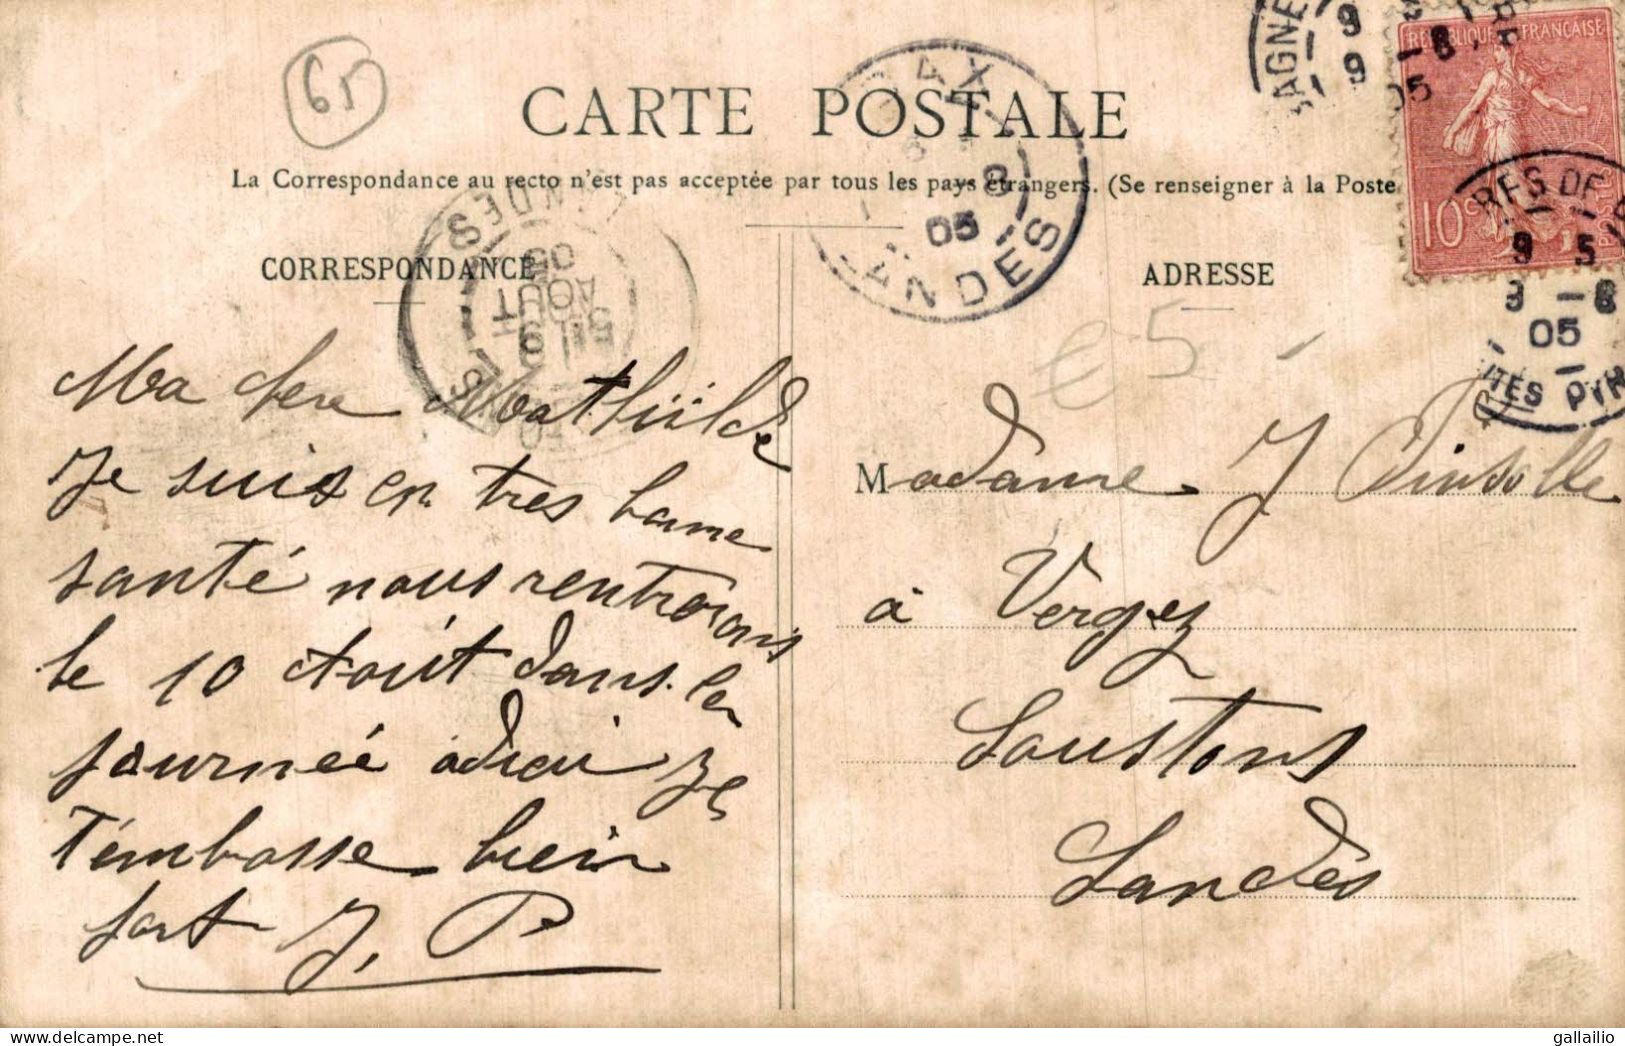 65
CARTE POSTALE
La Correspondance au recto n'est pas acceptée par tous les pays étrangers. (Se renseigner à la Poste
CORRESPONDANCE
Ma chere Mathilde
Je suis en tres bonne
santé nous rentrorons
le 10 Aout dans la
journée adieu Je
T'embrasse bien
fort J. P
ADRESSE
e5
Madame J Pinsolle
à Vergez
Soustons
Landès
REPUBLIQUE FRANÇAISE
10c
POSTES
DAX
8
05
LANDES
LANDES
5
9
AOUT
05
AGNE
9 -8
05
RES DE
9 5
9 -8
05
TES PYR
gallailio